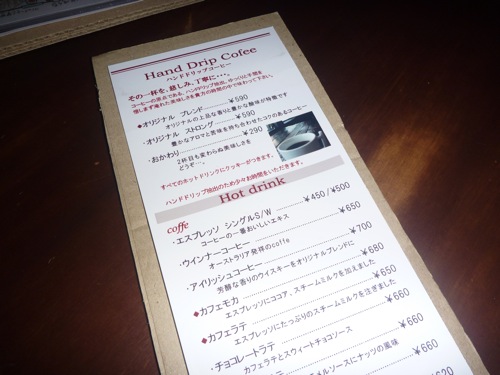 Hand Drip Cofee
ハンドドリップコーヒー
その一杯を、慈しみ、丁寧に・・・。
コーヒーの原点である、ハンドドリップ抽出。ゆっくりと手間を
惜しまず淹れた美味しさを貴方の時間の中で味わって下さい。
◆オリジナル ブレンド ¥590
オリジナルの上品な香りと豊かな酸味が特徴です
・オリジナル ストロング ¥590
豊かなアロマと苦味を持ち合わせたコクのあるコーヒー
・おかわり ¥290
2杯目も変わらぬ美味しさを
どうぞ…。
すべてのホットドリンクにクッキーがつきます。
ハンドドリップ抽出のため少々お時間をいただきます。
Hot drink
coffe
・エスプレッソ シングルS/W ¥450/¥500
コーヒーの一番おいしいエキス
・ウインナーコーヒー ¥650
オーストラリア発祥のcoffe
・アイリッシュコーヒー ¥700
芳醇な香りのウイスキーをオリジナルブレンドに
◆カフェモカ ¥680
エスプレッソにココア、スチームミルクを加えました
◆カフェラテ ¥650
エスプレッソにたっぷりのスチームミルクを注ぎました
・チョコレートラテ ¥660
カフェラテとスウィートチョコソース
¥660
メルソースにナッツの風味
¥620